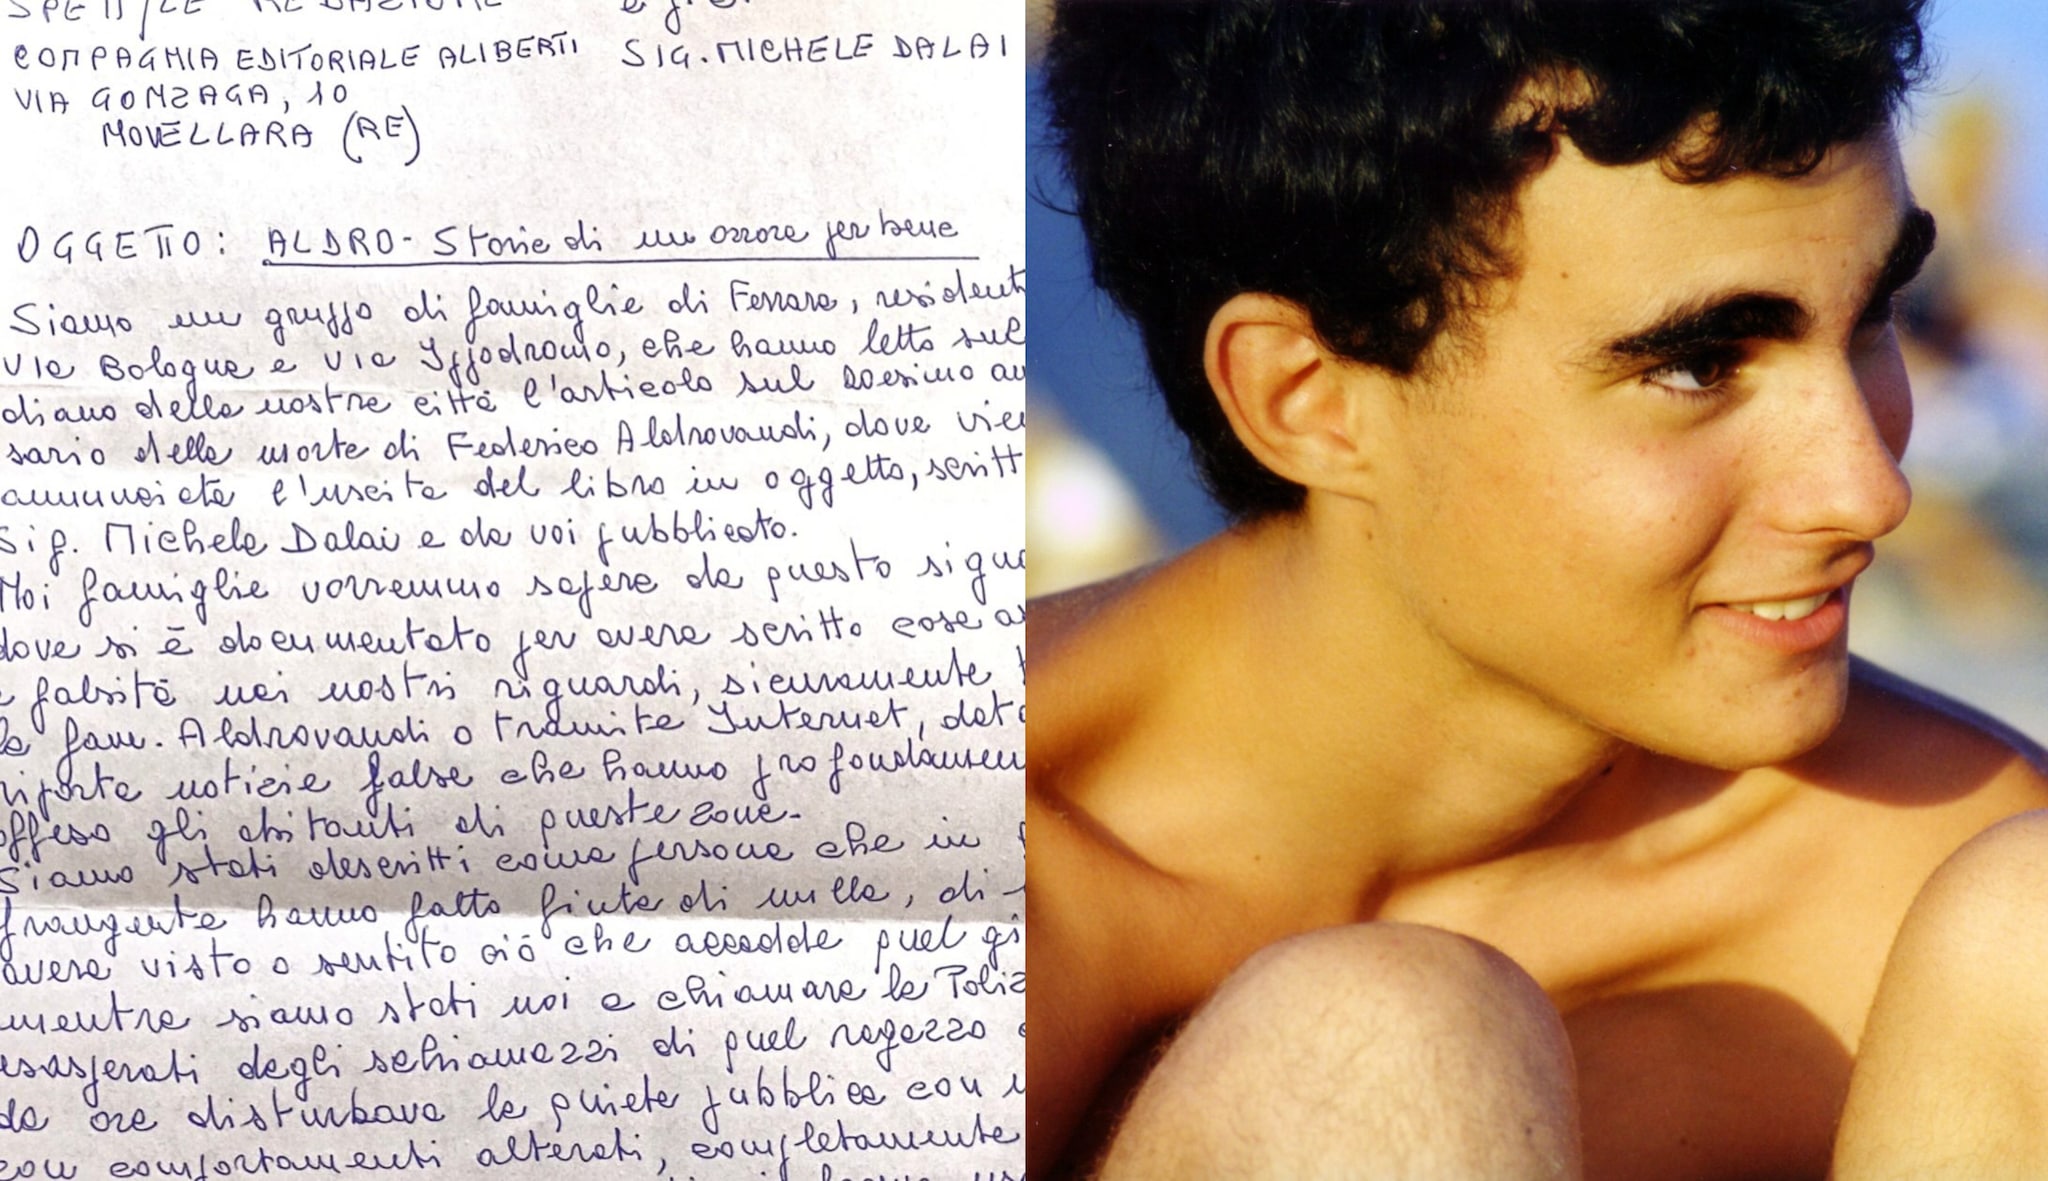 SPETT/LE REDAZIONE
COMPAGNIA EDITORIALE ALIBERTI SIG. MICHELE DALAI
VIA GONZAGA, 10
NOVELLARA (RE)
OGGETTO: ALDRO - Storie di un orrore per bene
Siamo un gruppo di famiglie di Ferrara, resident
Via Bologna e Via Ippodromo, che hanno letto sul
diano della nostra città l'articolo sul 20esimo an
sario della morte di Federico Aldrovandi, dove vie
annunciata l'uscita del libro in oggetto, scritt
Sig. Michele Dalai e da voi pubblicato.
Noi famiglie vorremmo sapere da questo sign
dove si è documentato per avere scritto cose as
e falsità nei nostri riguardi, sicuramente
la fam. Aldrovandi o tramite Internet, dato
riporta notizie false che hanno profondamen
offeso gli abitanti di queste zone.
Siamo stati descritti come persone che in
frangente hanno fatto finta di nulla, di
avere visto o sentito ciò che accadde quel gi
mentre siamo stati noi a chiamare la Poliz
esasperati dagli schiamazzi di quel ragazzo
da ore disturbava la quiete pubblica con
con comportamenti alterati, completamente